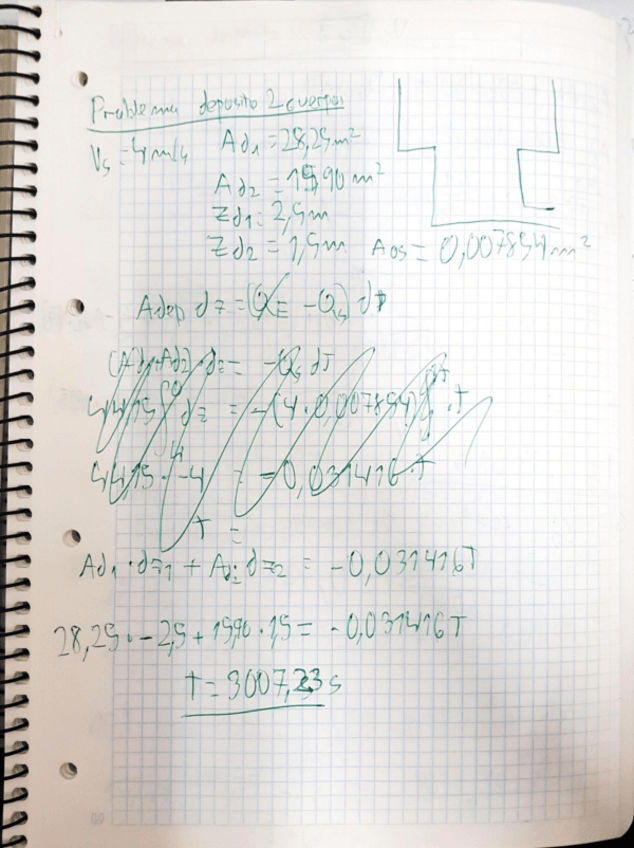 Problema deposito 2 cuerpos
Vs = 4 m/s Ad1 = 28,25 m²
Ad2 = 15,90 m²
Zd1 = 2,5m
Zd2 = 1,5m Aos = 0,007854 m²
Adep dz = (QE - Qs) dt
(Ad1+Ad2) dz = -Qs dt
44,15 ∫ dz = -(4 · 0,007854) ∫ · t
44,15 · -4 = -0,031416 · t
t =
Ad1 · dz1 + Ad2 · dz2 = -0,031416T
28,25 · -2,5 + 15,90 · 1,5 = -0,031416T
t = 3007,23 s